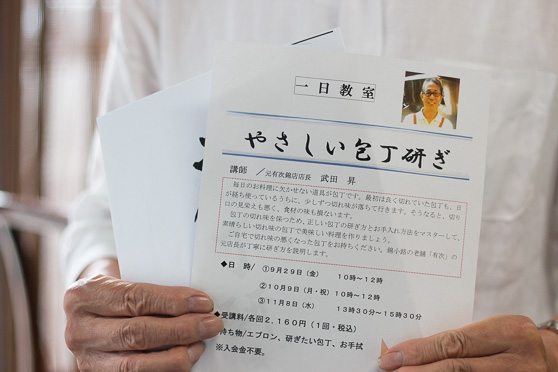 一日教室
やさしい包丁研ぎ
講師 ／元有次錦店店長 武田 昇
毎日のお料理に欠かせない道具が包丁です。最初は良く切れていた包丁も、日
が経ち使っているうちに、少しずつ切れ味が落ちて行きます。そうなると、切り
口の見栄えも悪く、食材の味も損ないます。
包丁の切れ味を保つため、正しい包丁の研ぎ方とお手入れ方法をマスターして、
素晴らしい切れ味の包丁で美味しい料理を作りましょう。
ご自宅で切れ味の悪くなった包丁をお持ちください。錦小路の老舗「有次」の
元店長が丁寧に研ぎ方を説明します。
◆日 時／①9月29日（金） 10時～12時
②10月9日（月・祝）10時～12時
③11月8日（水） 13時30分～15時30分
◆受講料/各回2,160円（1回・税込）
持ち物/エプロン、研ぎたい包丁、お手拭
※入会金不要。